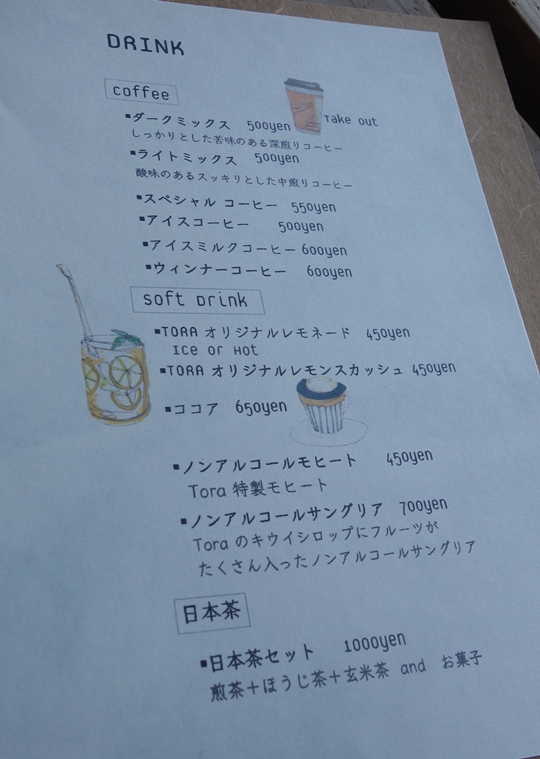 DRINK
coffee
■ダークミックス 500yen Take out
しっかりとした苦味のある深煎りコーヒー
■ライトミックス 500yen
酸味のあるスッキリとした中煎りコーヒー
■スペシャル コーヒー 550yen
■アイスコーヒー 500yen
■アイスミルクコーヒー 600yen
■ウィンナーコーヒー 600yen
soft Drink
■TORA オリジナルレモネード 450yen
Ice or Hot
■TORA オリジナルレモンスカッシュ 450yen
■ココア 650yen
■ノンアルコールモヒート 450yen
Tora 特製モヒート
■ノンアルコールサングリア 700yen
Tora のキウイシロップにフルーツが
たくさん入ったノンアルコールサングリア
日本茶
■日本茶セット 1000yen
煎茶+ほうじ茶+玄米茶 and お菓子